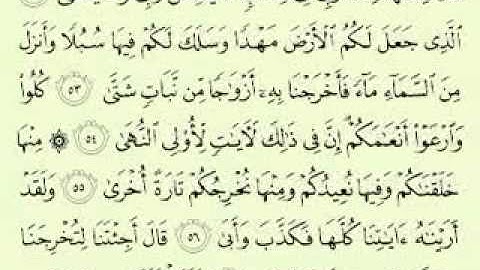 ٱلَّذِى جَعَلَ لَكُمُ ٱلْأَرْضَ مَهْدًا وَسَلَكَ لَكُمْ فِيهَا سُبُلًا وَأَنزَلَ
مِنَ ٱلسَّمَآءِ مَآءً فَأَخْرَجْنَا بِهِۦٓ أَزْوَٰجًا مِّن نَّبَاتٍ شَتَّىٰ ٥٣ كُلُوا۟
وَٱرْعَوْا۟ أَنْعَٰمَكُمْ إِنَّ فِى ذَٰلِكَ لَءَايَٰتٍ لِّأُو۟لِى ٱلنُّهَىٰ ٥٤ ۞ مِنْهَا
خَلَقْنَٰكُمْ وَفِيهَا نُعِيدُكُمْ وَمِنْهَا نُخْرِجُكُمْ تَارَةً أُخْرَىٰ ٥٥ وَلَقَدْ
أَرَيْنَٰهُ ءَايَٰتِنَا كُلَّهَا فَكَذَّبَ وَأَبَىٰ ٥٦ قَالَ أَجِئْتَنَا لِتُخْرِجَنَا